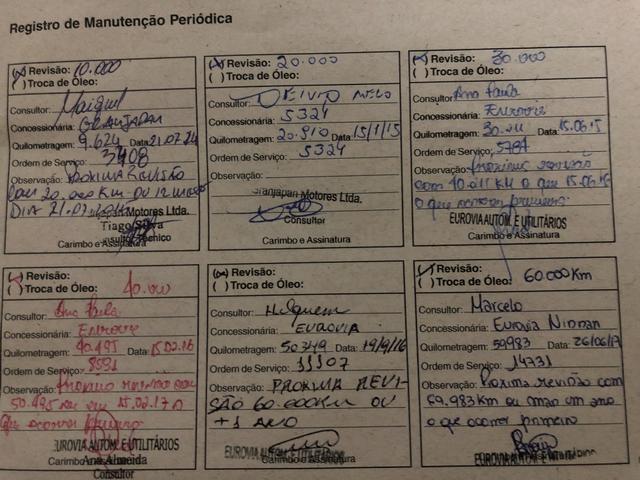 Registro de Manutenção Periódica
(x) Revisão: 10.000
( ) Troca de Óleo:
Consultor: Maiquel
Concessionária: GRANJAPAN
Quilometragem: 9.624 Data: 21.07.14
Ordem de Serviço: 3408
Observação: PROXIMA REVISÃO
COM 20.000 KM OU 12 MESES
DIA 21.07.2015
Motores Ltda.
Tiago Silva
Consultor Técnico
Carimbo e Assinatura
(x) Revisão: 20.000
( ) Troca de Óleo:
Consultor: DEIVID MELO
Concessionária: 5324
Quilometragem: 20.910 Data: 15/1/15
Ordem de Serviço: 5324
Observação:
Granjapan Motores Ltda.
Consultor
Carimbo e Assinatura
(x) Revisão: 30.000
( ) Troca de Óleo:
Consultor: Ana Paula
Concessionária: Eurovia
Quilometragem: 30.011 Data: 15.06.15
Ordem de Serviço:
Observação: Próxima revisão
com 40.011 KM o que 15.06.16
o que ocorrer primeiro
EUROVIA AUTOM. E UTILITÁRIOS
Carimbo e Assinatura
Revisão: 40.000
( ) Troca de Óleo:
Consultor: Ana Paula
Concessionária: Eurovia
Quilometragem: 40.495 Data: 15.02.16
Ordem de Serviço: 8591
Observação: Próxima com
50.495 KM ou 15.02.17 o
que ocorrer primeiro
EUROVIA AUTOM. E UTILITÁRIOS
Carimbo e Assinatura
Ana Almeida
Consultor
(x) Revisão:
( ) Troca de Óleo:
Consultor:
Concessionária: EUROVIA
Quilometragem: 50349 Data: 19/9/16
Ordem de Serviço: 11107
Observação: PROXIMA REVI-
SÃO 60.000KM OU
+ 1 ANO
EUROVIA AUTOM. E UTILITÁRIOS
Carimbo e Assinatura
Revisão:
( ) Troca de Óleo: 60.000 Km
Consultor: Marcelo
Concessionária: Eurovia Nissan
Quilometragem: 59983 Data: 26/06/17
Ordem de Serviço: 14731
Observação: Proxima revisão com
69.983 KM ou mais um ano
o que ocorrer primeiro
EUROVIA AUTOM. E UTILITÁRIOS
Carimbo e Assinatura